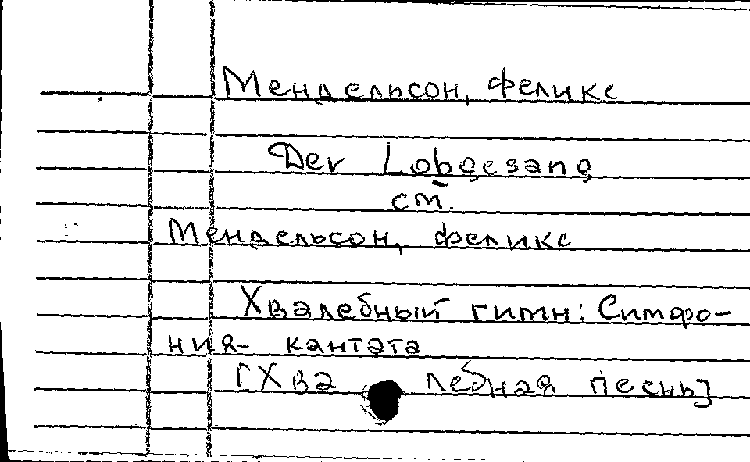 Мендельсон, Феликс
Der Lobgesang
см.
Мендельсон, Феликс
Хвалебный гимн: Симфо-
ния- кантата
[Хва лебная песнь]